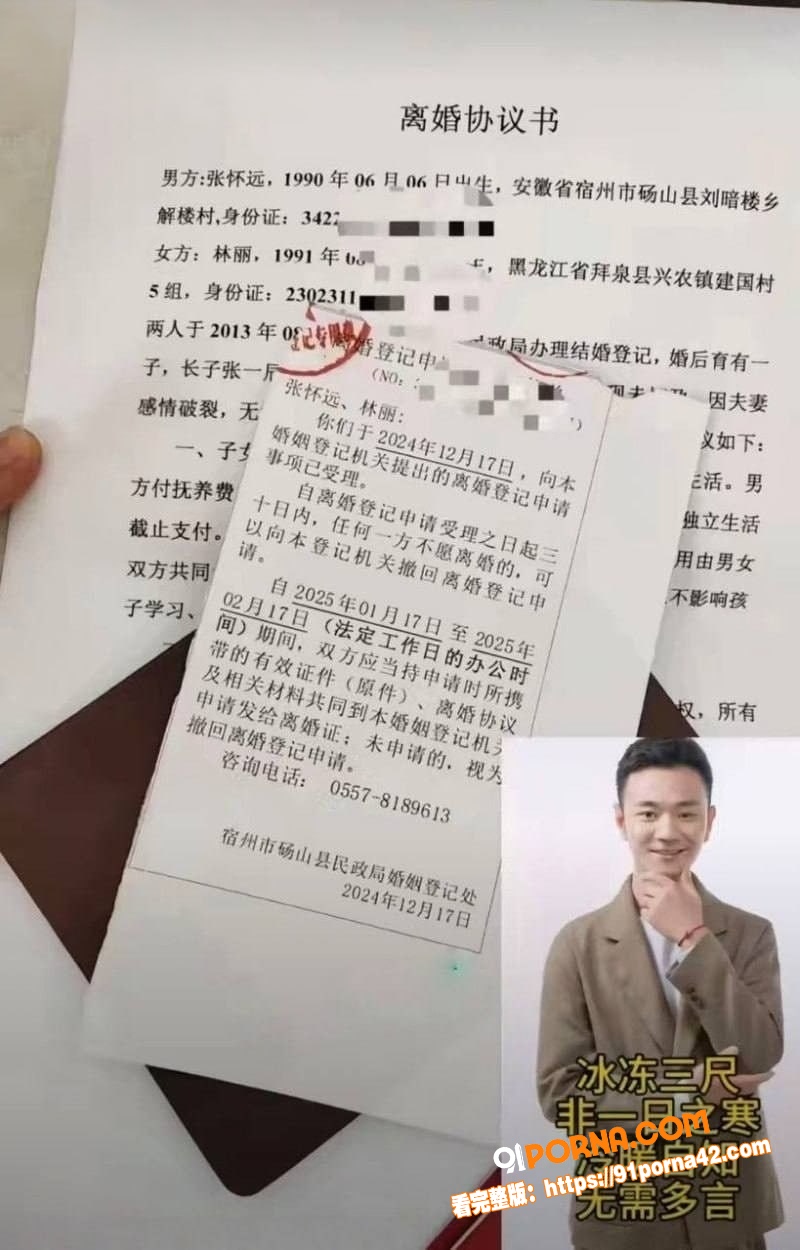 离婚协议书
男方:张怀远，1990 年 06 月 06 日出生，安徽省宿州市砀山县刘暗楼乡
解楼村,身份证：3422
女方：林丽，1991 年
黑龙江省拜泉县兴农镇建国村
5 组，身份证：2302311
两人于 2013 年
民政局办理结婚登记，婚后育有一
子，长子张一
因夫妻
感情破裂，无
议如下：
一、子女
生活。男
方付抚养费
独立生活
截止支付。
用由男女
双方共同
不影响孩
子学习、
权，所有
记专用章
离婚登记申
（NO：
张怀远、林丽：
你们于 2024年12月17日，向本
婚姻登记机关提出的离婚登记申请
事项已受理。
自离婚登记申请受理之日起三
十日内，任何一方不愿离婚的，可
以向本登记机关撤回离婚登记申
请。
自 2025年01月17日 至 2025年
02月17日（法定工作日的办公时
间）期间，双方应当持申请时所携
带的有效证件（原件）、离婚协议
及相关材料共同到本婚姻登记机关
申请发给离婚证；未申请的，视为
撤回离婚登记申请。
咨询电话： 0557-8189613
宿州市砀山县民政局婚姻登记处
2024年12月17日
冰冻三尺
非一日之寒
冷暖自知
无需多言
91PORNA.COM
看完整版：https://91porna42.com